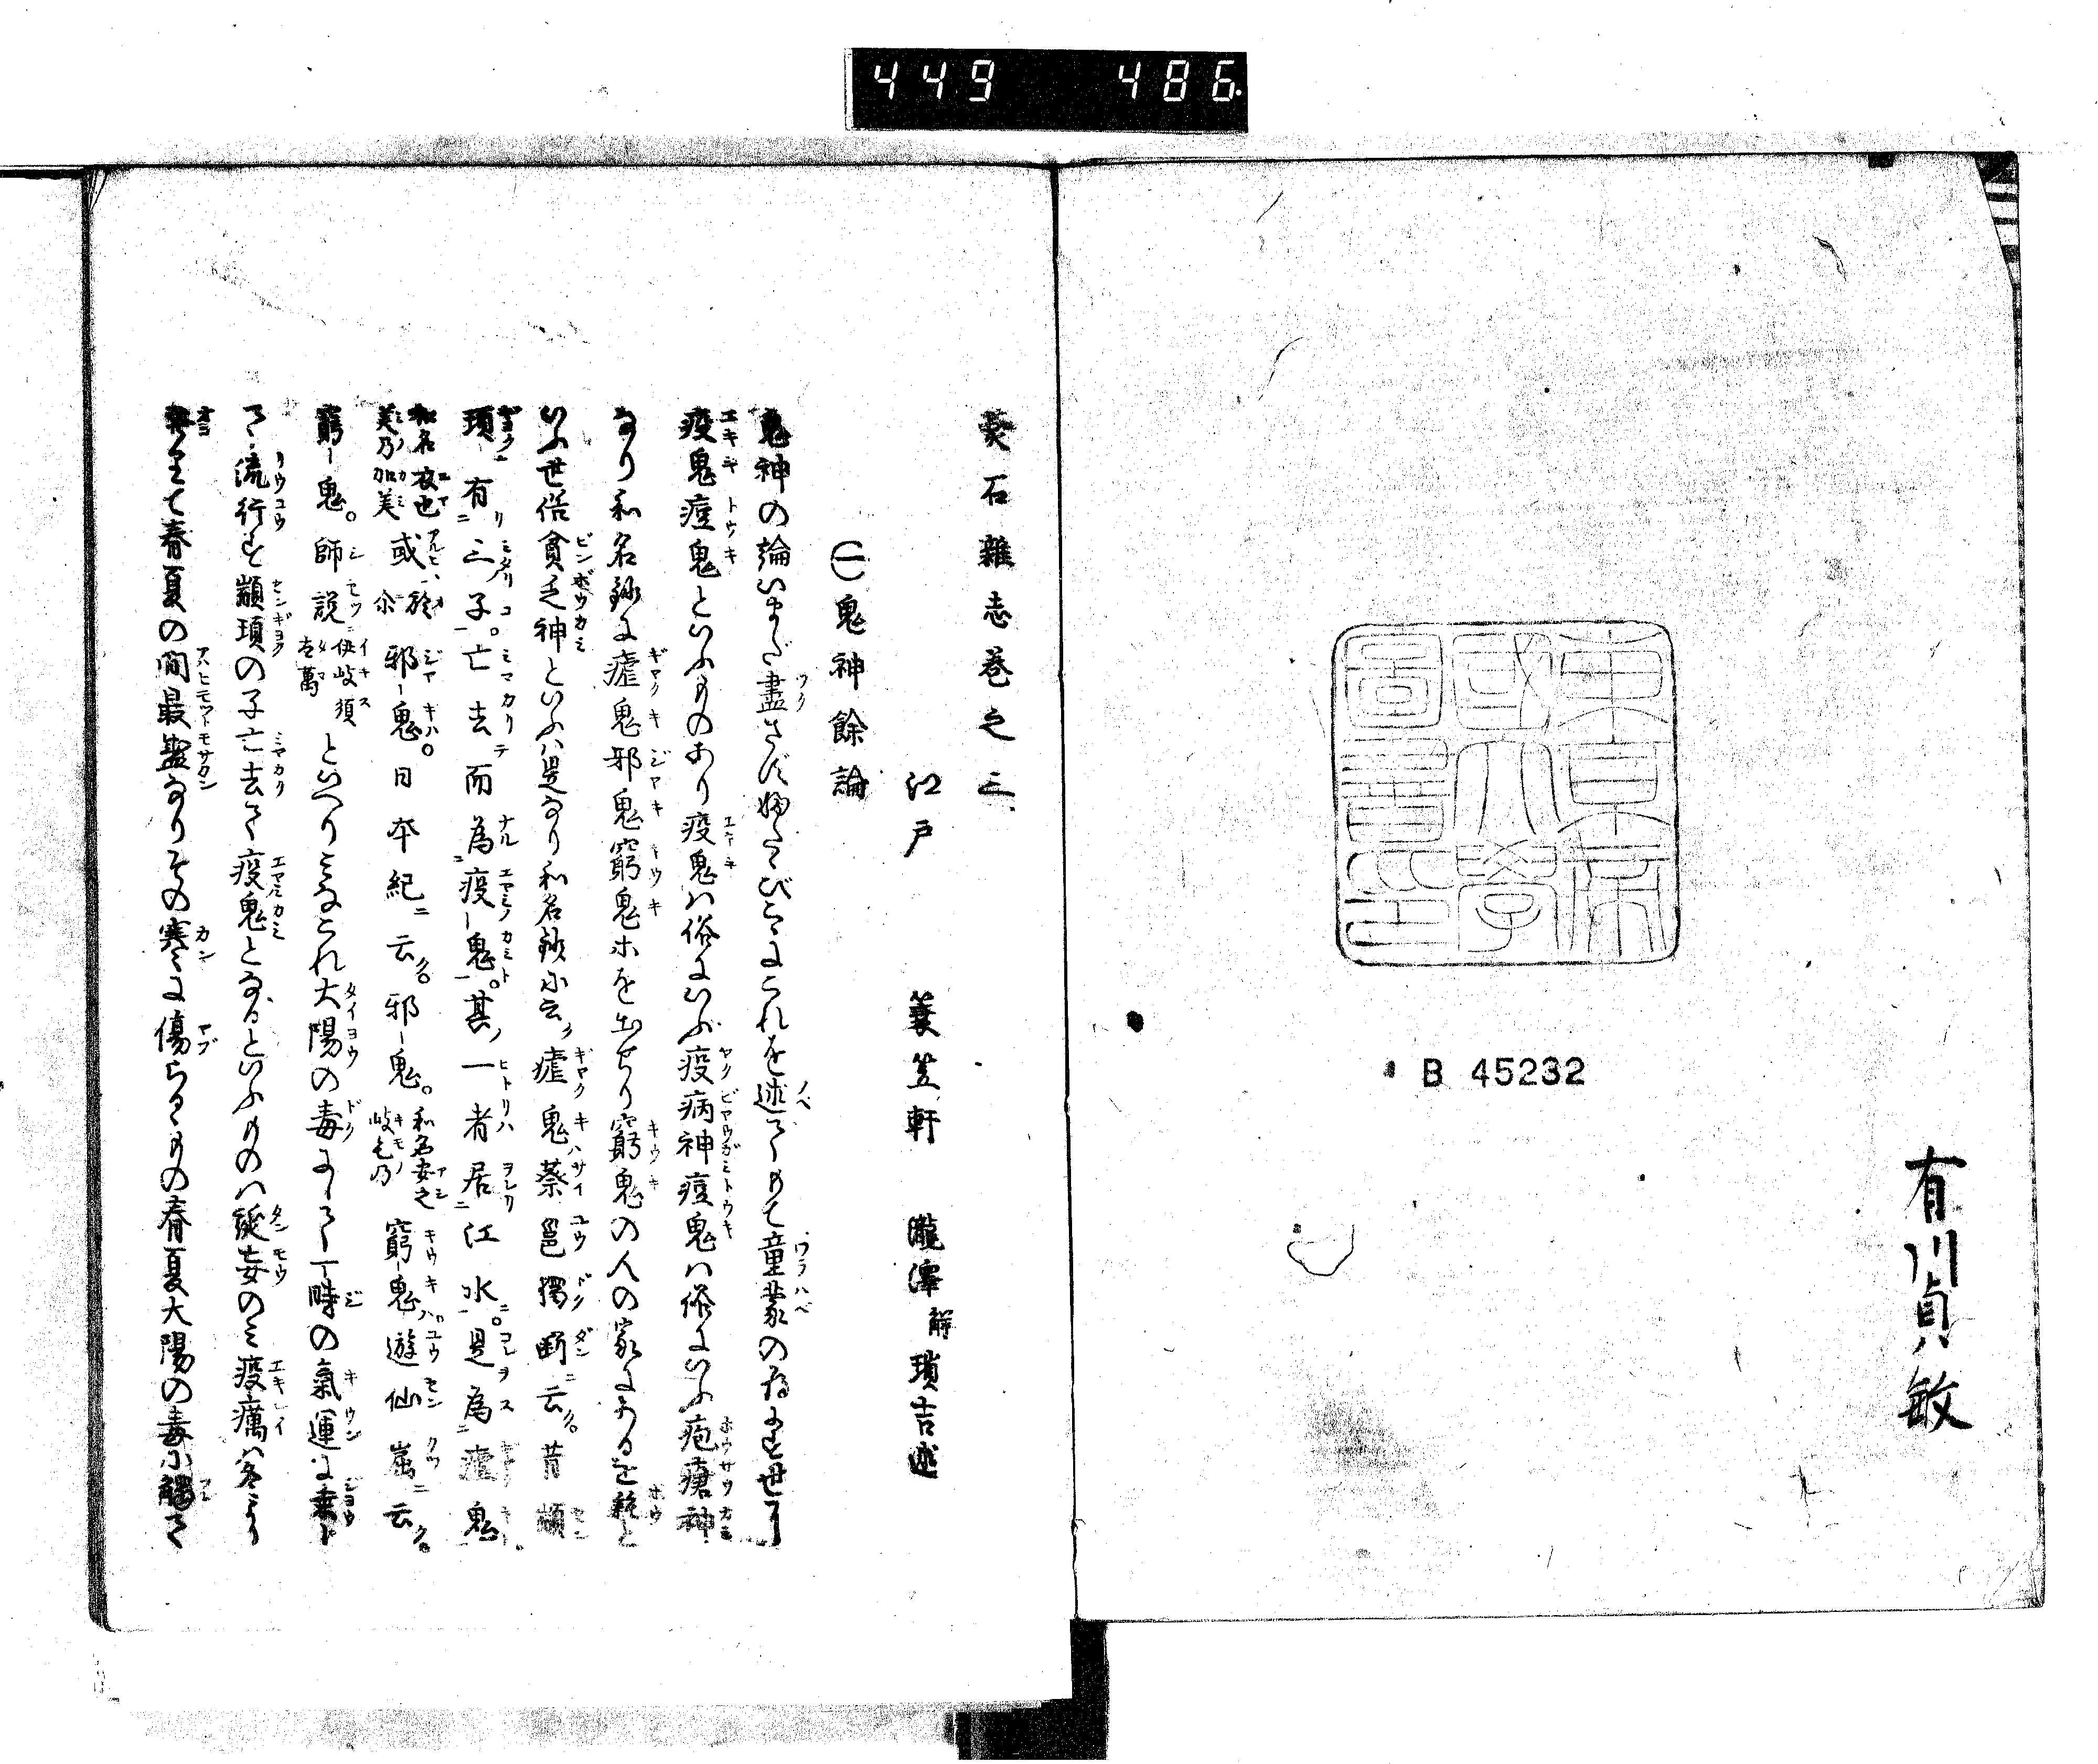 449 486
東京帝
國大學
圖書印
B 45232
有川貞敏
蓑石雜志巻之三
江戸 蓑笠軒 瀧澤解瑣吉述
㊀鬼神餘論
鬼神の論いまだ盡さず婦たゝびこゝにこれを述てもて童蒙の為にす世に
疫鬼痘鬼といふものあり疫鬼ハ俗にいふ疫病神痘鬼ハ俗にいふ疱瘡神
なり和名鈔に瘧鬼邪鬼窮鬼ホを出せり窮鬼の人の家にあるを耗と
いふ世俗貧乏神といふハ是なり和名鈔に云瘧鬼蔡邕獨断ニ云ク昔顓
頊有三子。亡去テ而為疫鬼。其ノ一者居江水。是為瘧鬼
和名衣也美乃加美 或於尓 邪鬼。日本紀ニ云ク。邪鬼。和名安之岐毛乃 窮鬼遊仙窟ニ云ク。
窮鬼。師説伊岐須太萬といへりみなこれ大陽の毒によりて一時の氣運に乗じ
て流行す顓頊の子亡去て疫鬼となるといふものハ誕妄のミ疫癘ハ冬より
發りて春夏の間最盛なりその寒に傷らるゝもの春夏大陽の毒に觸て